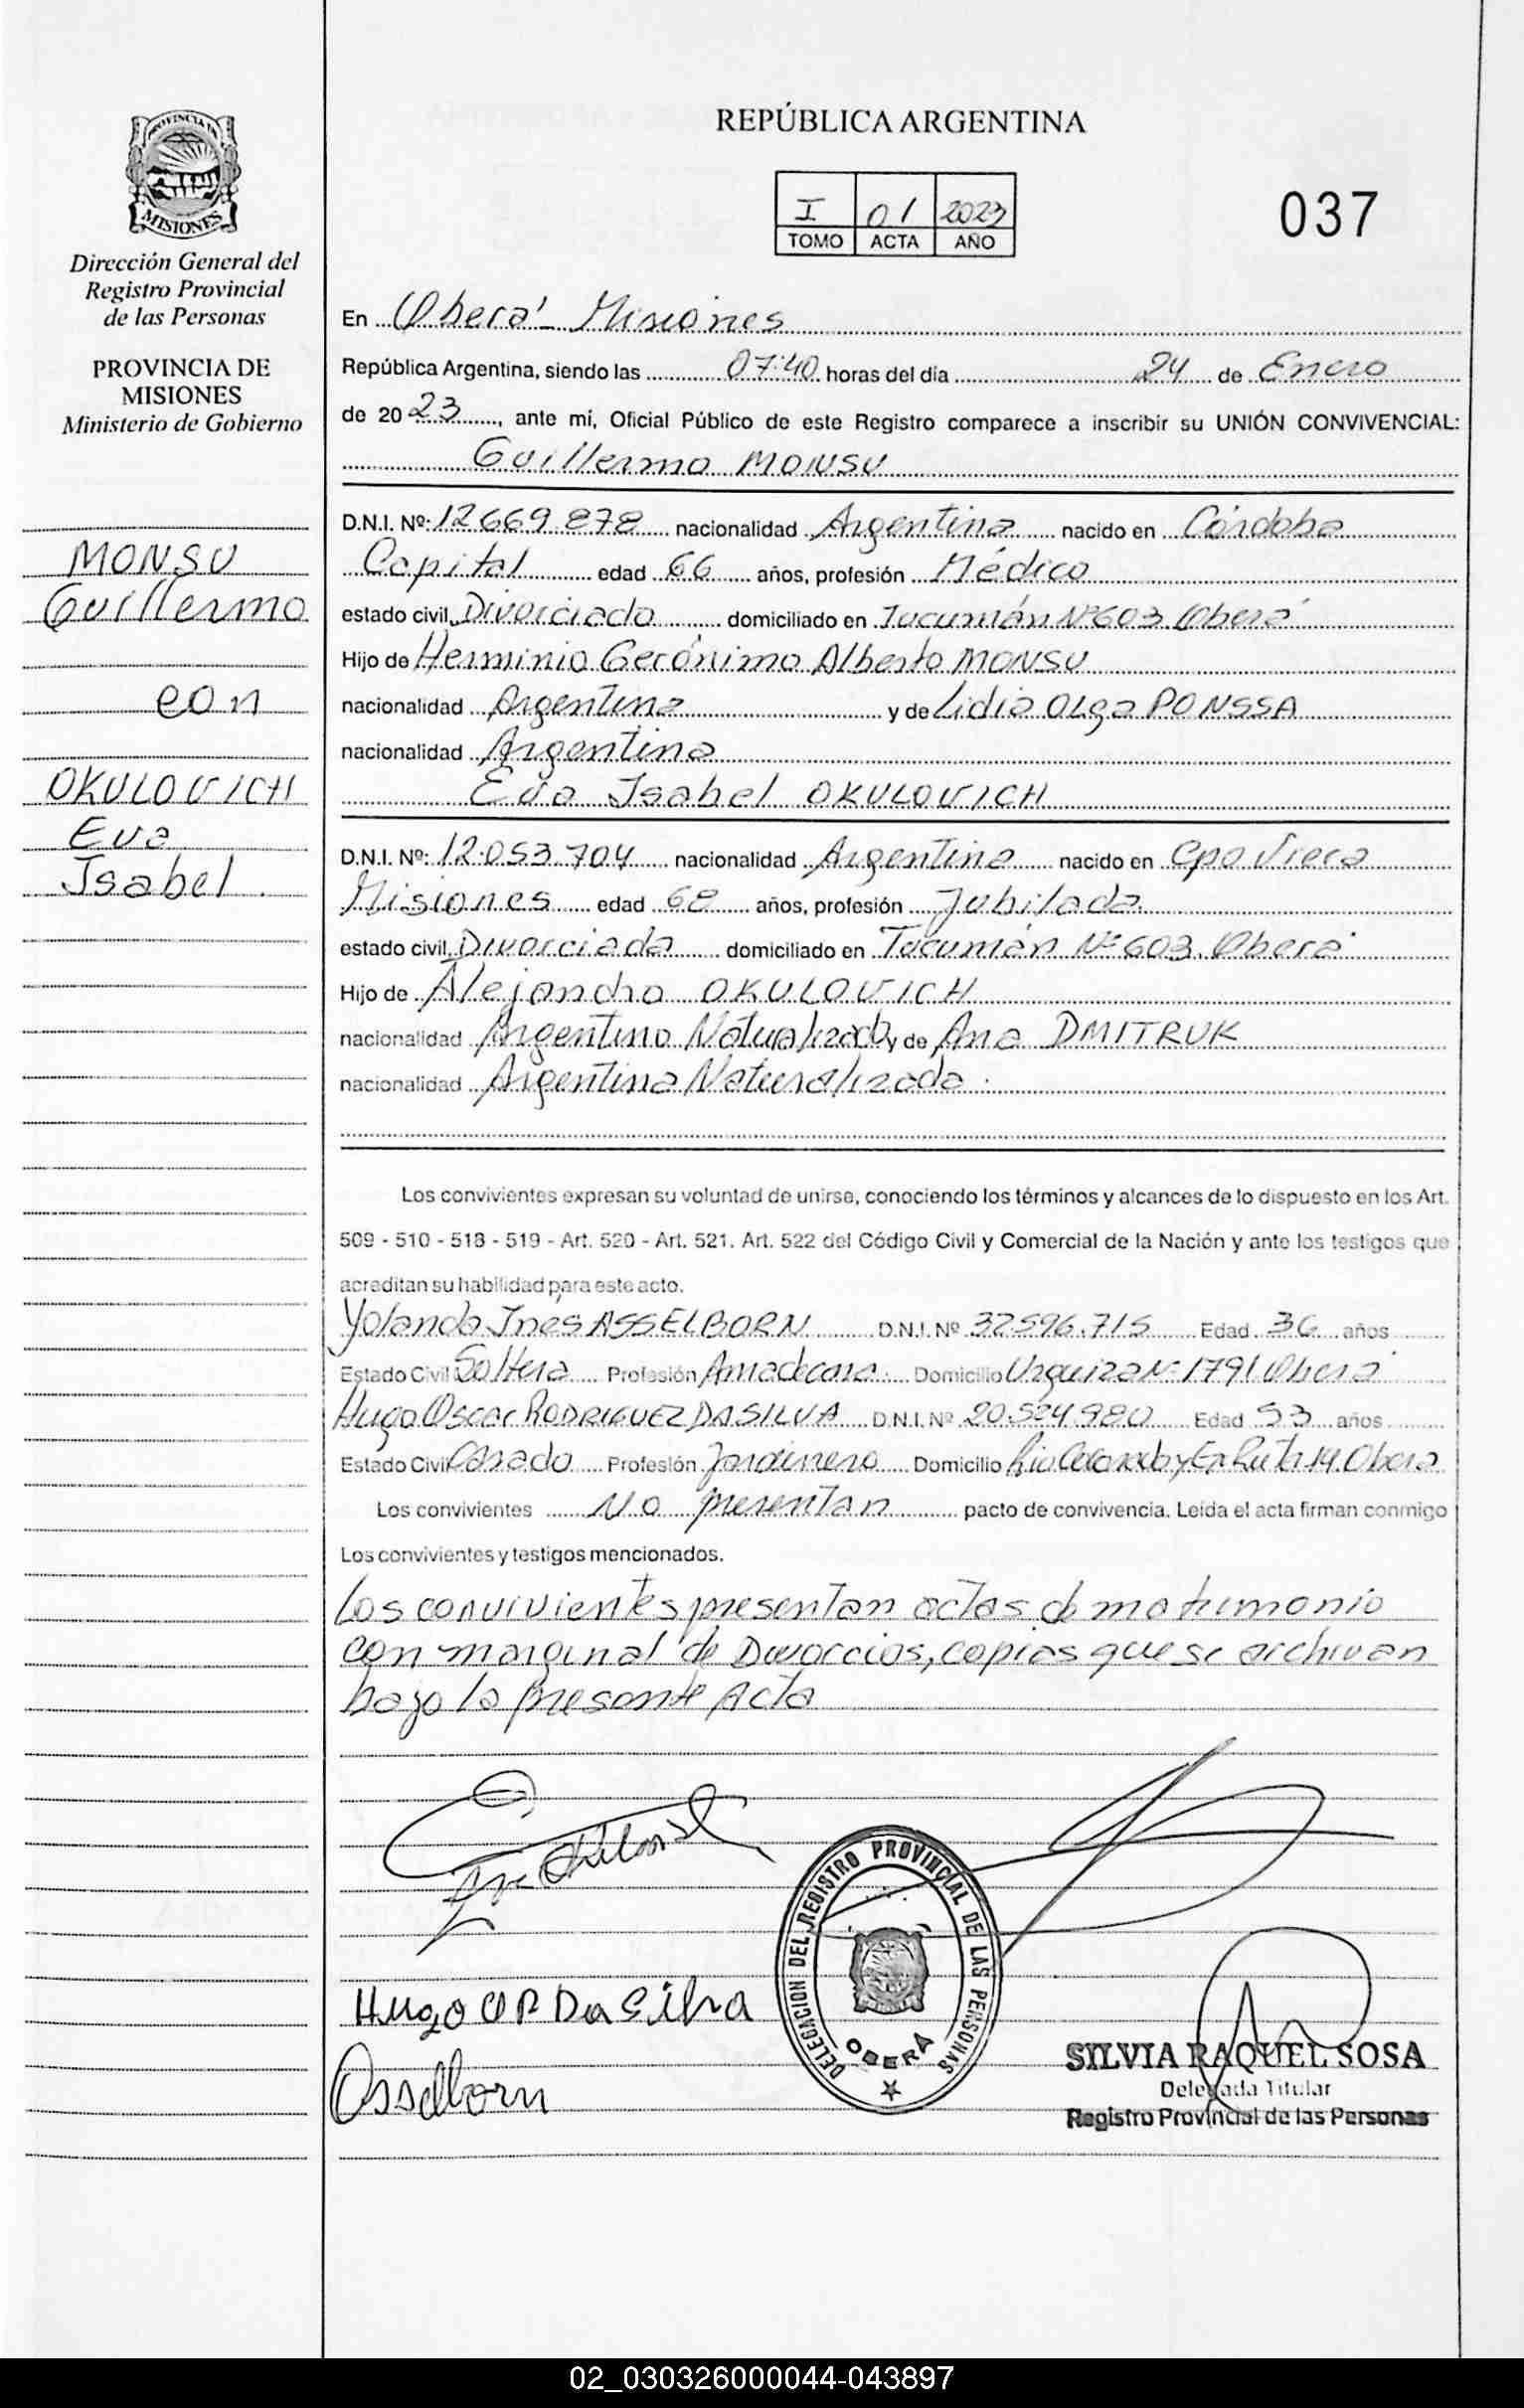 PROVINCIA DE
MISIONES
Dirección General del
Registro Provincial
de las Personas
PROVINCIA DE
MISIONES
Ministerio de Gobierno
MONSU
Guillermo
con
OKULOVICH
Eva
Isabel.
REPÚBLICA ARGENTINA
I 01 2023
TOMO ACTA AÑO
037
En Oberá - Misiones
República Argentina, siendo las 07:40 horas del día 24 de Enero
de 2023, ante mí, Oficial Público de este Registro comparece a inscribir su UNIÓN CONVIVENCIAL:
Guillermo MONSU
D.N.I. Nº: 12669.878 nacionalidad Argentina nacido en Córdoba
Capital edad 66 años, profesión Médico
estado civil Divorciado domiciliado en Tucumán Nº 603. Oberá
Hijo de Herminio Gerónimo Alberto MONSU
nacionalidad Argentina y de Lidia Olga PONSSA
nacionalidad Argentina
Eva Isabel OKULOVICH
D.N.I. Nº: 12.053.704 nacionalidad Argentina nacido en Cpo Viera
Misiones edad 68 años, profesión Jubilada.
estado civil Divorciada domiciliado en Tucumán Nº 603. Oberá
Hijo de Alejandro OKULOVICH
nacionalidad Argentino Naturalizado y de Ana DMITRUK
nacionalidad Argentina Naturalizada.
Los convivientes expresan su voluntad de unirse, conociendo los términos y alcances de lo dispuesto en los Art.
509 - 510 - 518 - 519 - Art. 520 - Art. 521. Art. 522 del Código Civil y Comercial de la Nación y ante los testigos que
acreditan su habilidad para este acto.
Yolanda Inés ASSELBORN D.N.I. Nº 32.596.715 Edad 36 años
Estado Civil Soltera Profesión Ama de casa. Domicilio Urquiza Nº 1791 Oberá
Hugo Oscar RODRIGUEZ DA SILVA D.N.I. Nº 20.524.980 Edad 53 años
Estado Civil Casado Profesión Jardinero Domicilio Rio Colorado y Ex Ruta 14. Oberá
Los convivientes No presentan pacto de convivencia. Leída el acta firman conmigo
Los convivientes y testigos mencionados.
Los convivientes presentan actas de matrimonio
con marginal de Divorcios, copias que se archivan
bajo la presente Acta
DELEGACION DEL REGISTRO PROVINCIAL DE LAS PERSONAS
OBERÁ
Hugo O R Da Silva
Asselborn
SILVIA RAQUEL SOSA
Delegada Titular
Registro Provincial de las Personas
02_030326000044-043897